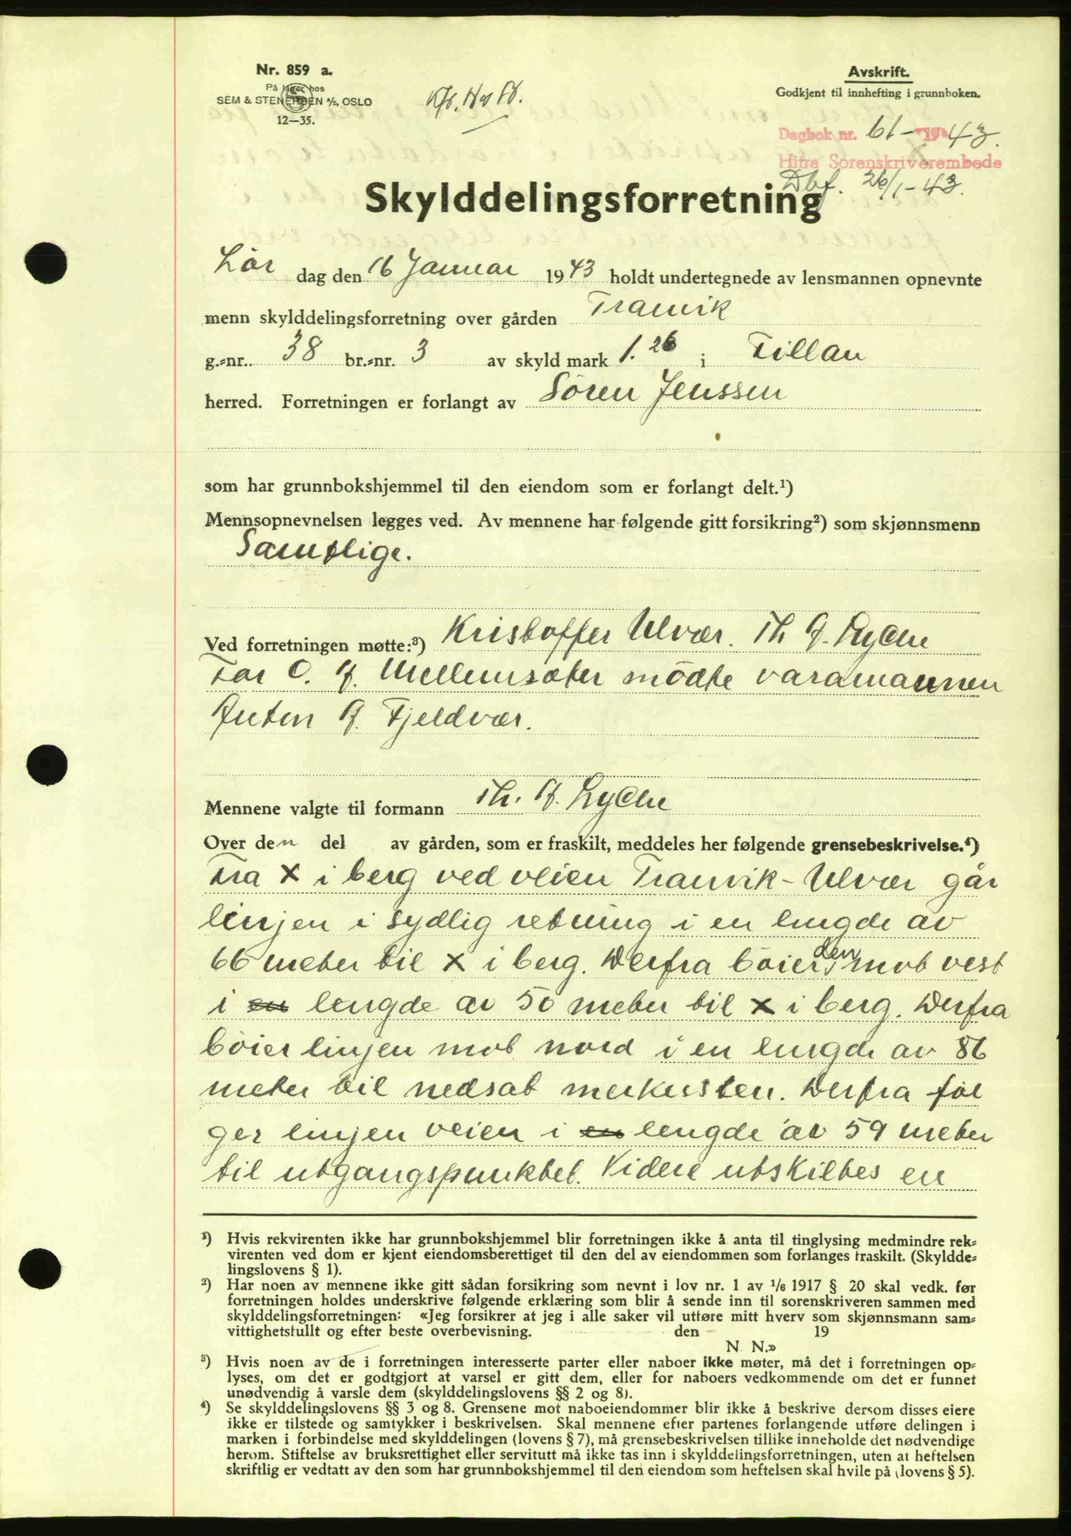 Nr. 859 a.
På lager hos
SEM & STENERSEN A/S, OSLO
12—35.
Avskrift.
Godkjent til innhefting i grunnboken.
Dagbok nr. 61- 1943.
Hitra Sorenskriverembede
Dbf. 26/1-43.
Skylddelingsforretning
Lör dag den 16 Januar 1943 holdt undertegnede av lensmannen opnevnte
menn skylddelingsforretning over gården Tranvik
g.-nr. 38 br.-nr. 3 av skyld mark 1.26 i Fillan
herred. Forretningen er forlangt av Sören Jenssen
som har grunnbokshjemmel til den eiendom som er forlangt delt.¹)
Mennsopnevnelsen legges ved. Av mennene har følgende gitt forsikring²) som skjønnsmenn
Samtlige.
Ved forretningen møtte:³) Kristoffer Ulvær. Th J. Lyche
For O. J. Mellemsæter mödte varamannen
Anton J. Fjeldvær.
Mennene valgte til formann Th. J. Lyche
Over den del av gården, som er fraskilt, meddeles her følgende grensebeskrivelse.⁴)
Fra X i berg ved veien Tranvik - Ulvær går
linjen i sydlig retning i en lengde av
66 meter til X i berg. Derfra böier den mot vest
i en lengde av 50 meter til X i berg. Derfra
böier linjen mot nord i en lengde av 86
meter til nedsat merkessten. Derfra föl
ger linjen veien i en lengde av 59 meter
til utgangspunktet. Videre utskiltes en
¹) Hvis rekvirenten ikke har grunnbokshjemmel blir forretningen ikke å anta til tinglysing medmindre rek-
virenten ved dom er kjent eiendomsberettiget til den del av eiendommen som forlanges fraskilt. (Skyldde-
lingslovens § 1).
²) Har noen av mennene ikke gitt sådan forsikring som nevnt i lov nr. 1 av 1/6 1917 § 20 skal vedk. før
forretningen holdes underskrive følgende erklæring som blir å sende inn til sorenskriveren sammen med
skylddelingsforretningen: «Jeg forsikrer at jeg i alle saker vil utføre mitt hverv som skjønnsmann sam-
vittighetsfullt og efter beste overbevisning. den 19
N. N.»
³) Hvis noen av de i forretningen interesserte parter eller naboer ikke møter, må det i forretningen op-
lyses, om det er godtgjort at varsel er gitt dem, eller for naboers vedkommende om det er funnet
unødvendig å varsle dem (skylddelingslovens §§ 2 og 8).
⁴) Se skylddelingslovens §§ 3 og 8. Grensene mot naboeiendommer blir ikke å beskrive dersom disses eiere
ikke er tilstede og samtykker i beskrivelsen. Skal mennene efter partenes forlangende utføre delingen i
marken i forbindelse med skylddelingen (lovens § 7), må grensebeskrivelsen tillike inneholde det nødvendige
herom. Stiftelse av bruksrettighet eller servitutt må ikke tas inn i skylddelingsforretningen, uten at heftelsen
skriftlig er vedtatt av den som har grunnbokshjemmel til den eiendom som heftelsen skal hvile på (lovens § 5).